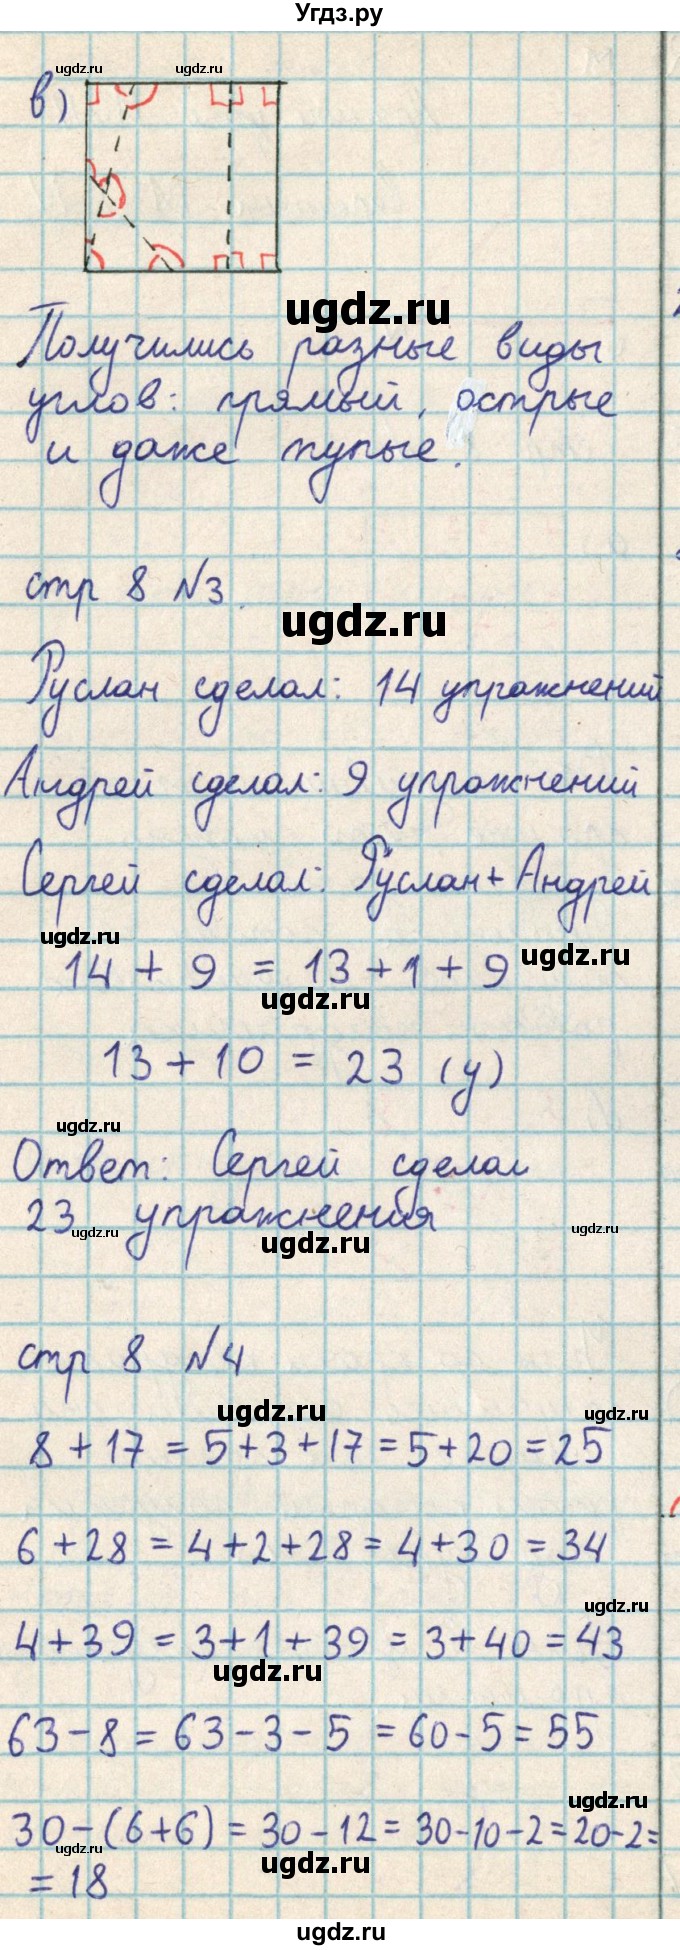 Угдз.ру
ugdz.ru ugdz.ru
в)
ugdz.ru
Получились разные виды
углов: прямый, острые
и даже тупые.
стр 8 №3
ugdz.ru
Руслан сделал: 14 упражнений
Андрей сделал: 9 упражнений
Сергей сделал: Руслан + Андрей
ugdz.ru
14 + 9 = 13 + 1 + 9
ugdz.ru
ugdz.ru
13 + 10 = 23 (у)
ugdz.ru
Ответ: Сергей сделал
23 упражнения
ugdz.ru ugdz.ru ugdz.ru
стр 8 №4
ugdz.ru ugdz.ru
8 + 17 = 5 + 3 + 17 = 5 + 20 = 25
6 + 28 = 4 + 2 + 28 = 4 + 30 = 34
ugdz.ru
4 + 39 = 3 + 1 + 39 = 3 + 40 = 43
ugdz.ru
63 - 8 = 63 - 3 - 5 = 60 - 5 = 55
ugdz.ru
30 - (6 + 6) = 30 - 12 = 30 - 10 - 2 = 20 - 2 =
ugdz.ru ugdz.ru
= 18
ugdz.ru